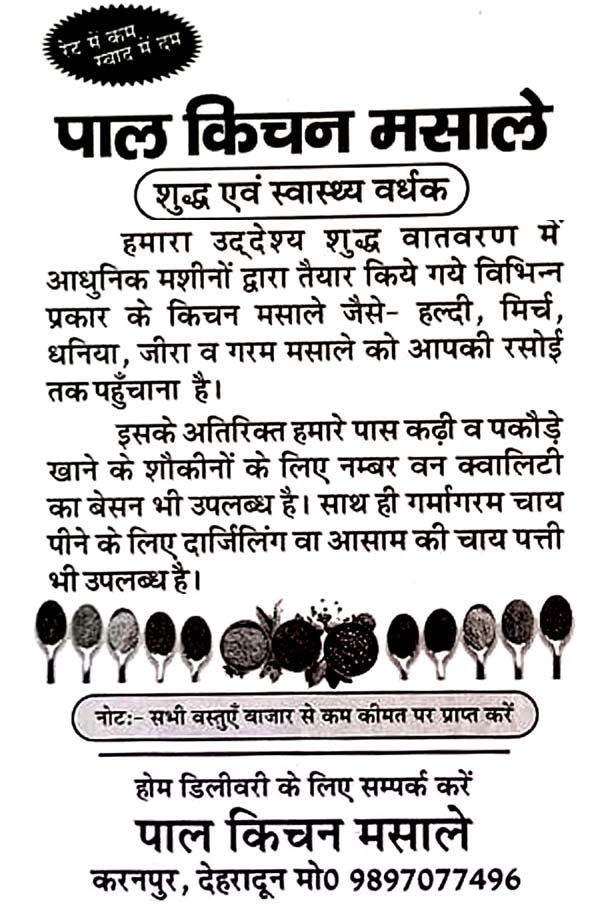 रेट में कम
स्वाद में दम
पाल किचन मसाले
शुद्ध एवं स्वास्थ्य वर्धक
हमारा उद्देश्य शुद्ध वातवरण में
आधुनिक मशीनों द्वारा तैयार किये गये विभिन्न
प्रकार के किचन मसाले जैसे- हल्दी, मिर्च,
धनिया, जीरा व गरम मसाले को आपकी रसोई
तक पहुँचाना है।
इसके अतिरिक्त हमारे पास कढ़ी व पकौड़े
खाने के शौकीनों के लिए नम्बर वन क्वालिटी
का बेसन भी उपलब्ध है। साथ ही गर्मागरम चाय
पीने के लिए दार्जिलिंग वा आसाम की चाय पत्ती
भी उपलब्ध है।
नोटः- सभी वस्तुएँ बाजार से कम कीमत पर प्राप्त करें
होम डिलीवरी के लिए सम्पर्क करें
पाल किचन मसाले
करनपुर, देहरादून मो0 9897077496